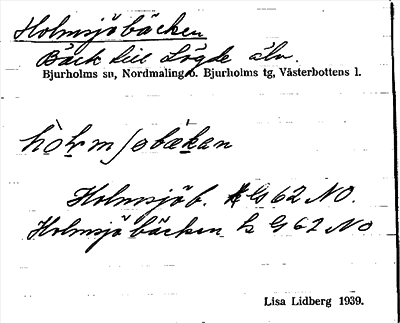 Holmsjöbäcken
Bäck till Lögde älv.
Bjurholms sn, Nordmaling o. Bjurholms tg, Västerbottens l.
Holmsjöb. G 62 NO.
Holmsjöbäcken G 62 NO
Lisa Lidberg 1939.